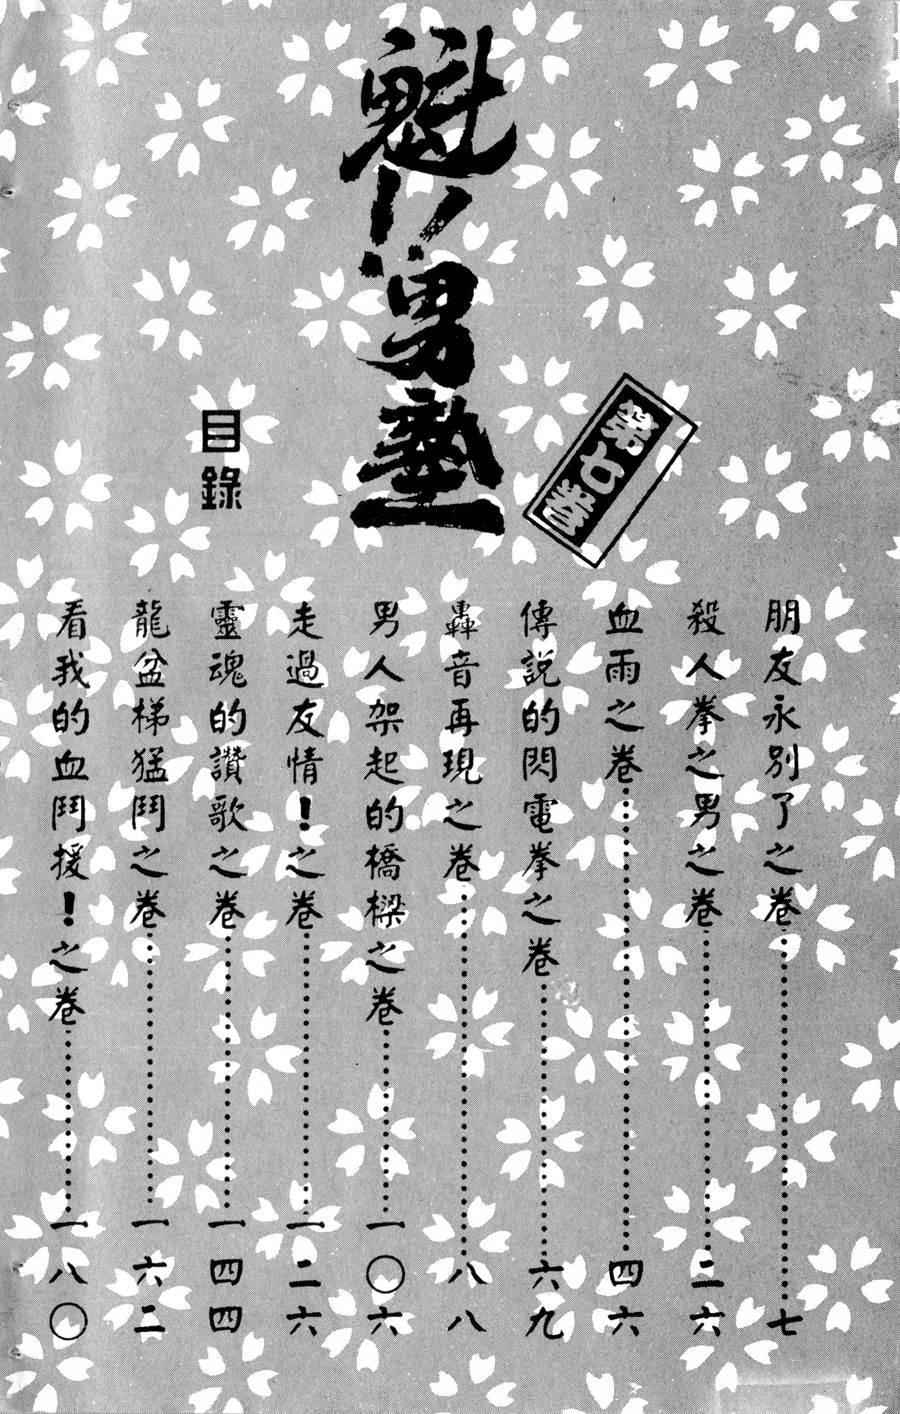 魁!!男塾
第七卷
目錄
朋友永別了之卷……七
殺人拳之男之卷……二六
血雨之卷……四六
傳説的閃電拳之卷……六九
轟音再現之卷……八八
男人架起的橋樑之卷……一〇六
走過友情!之卷……一二六
靈魂的讚歌之卷……一四四
龍盆梯猛鬥之卷……一六二
看我的血鬥援!之卷……一八〇